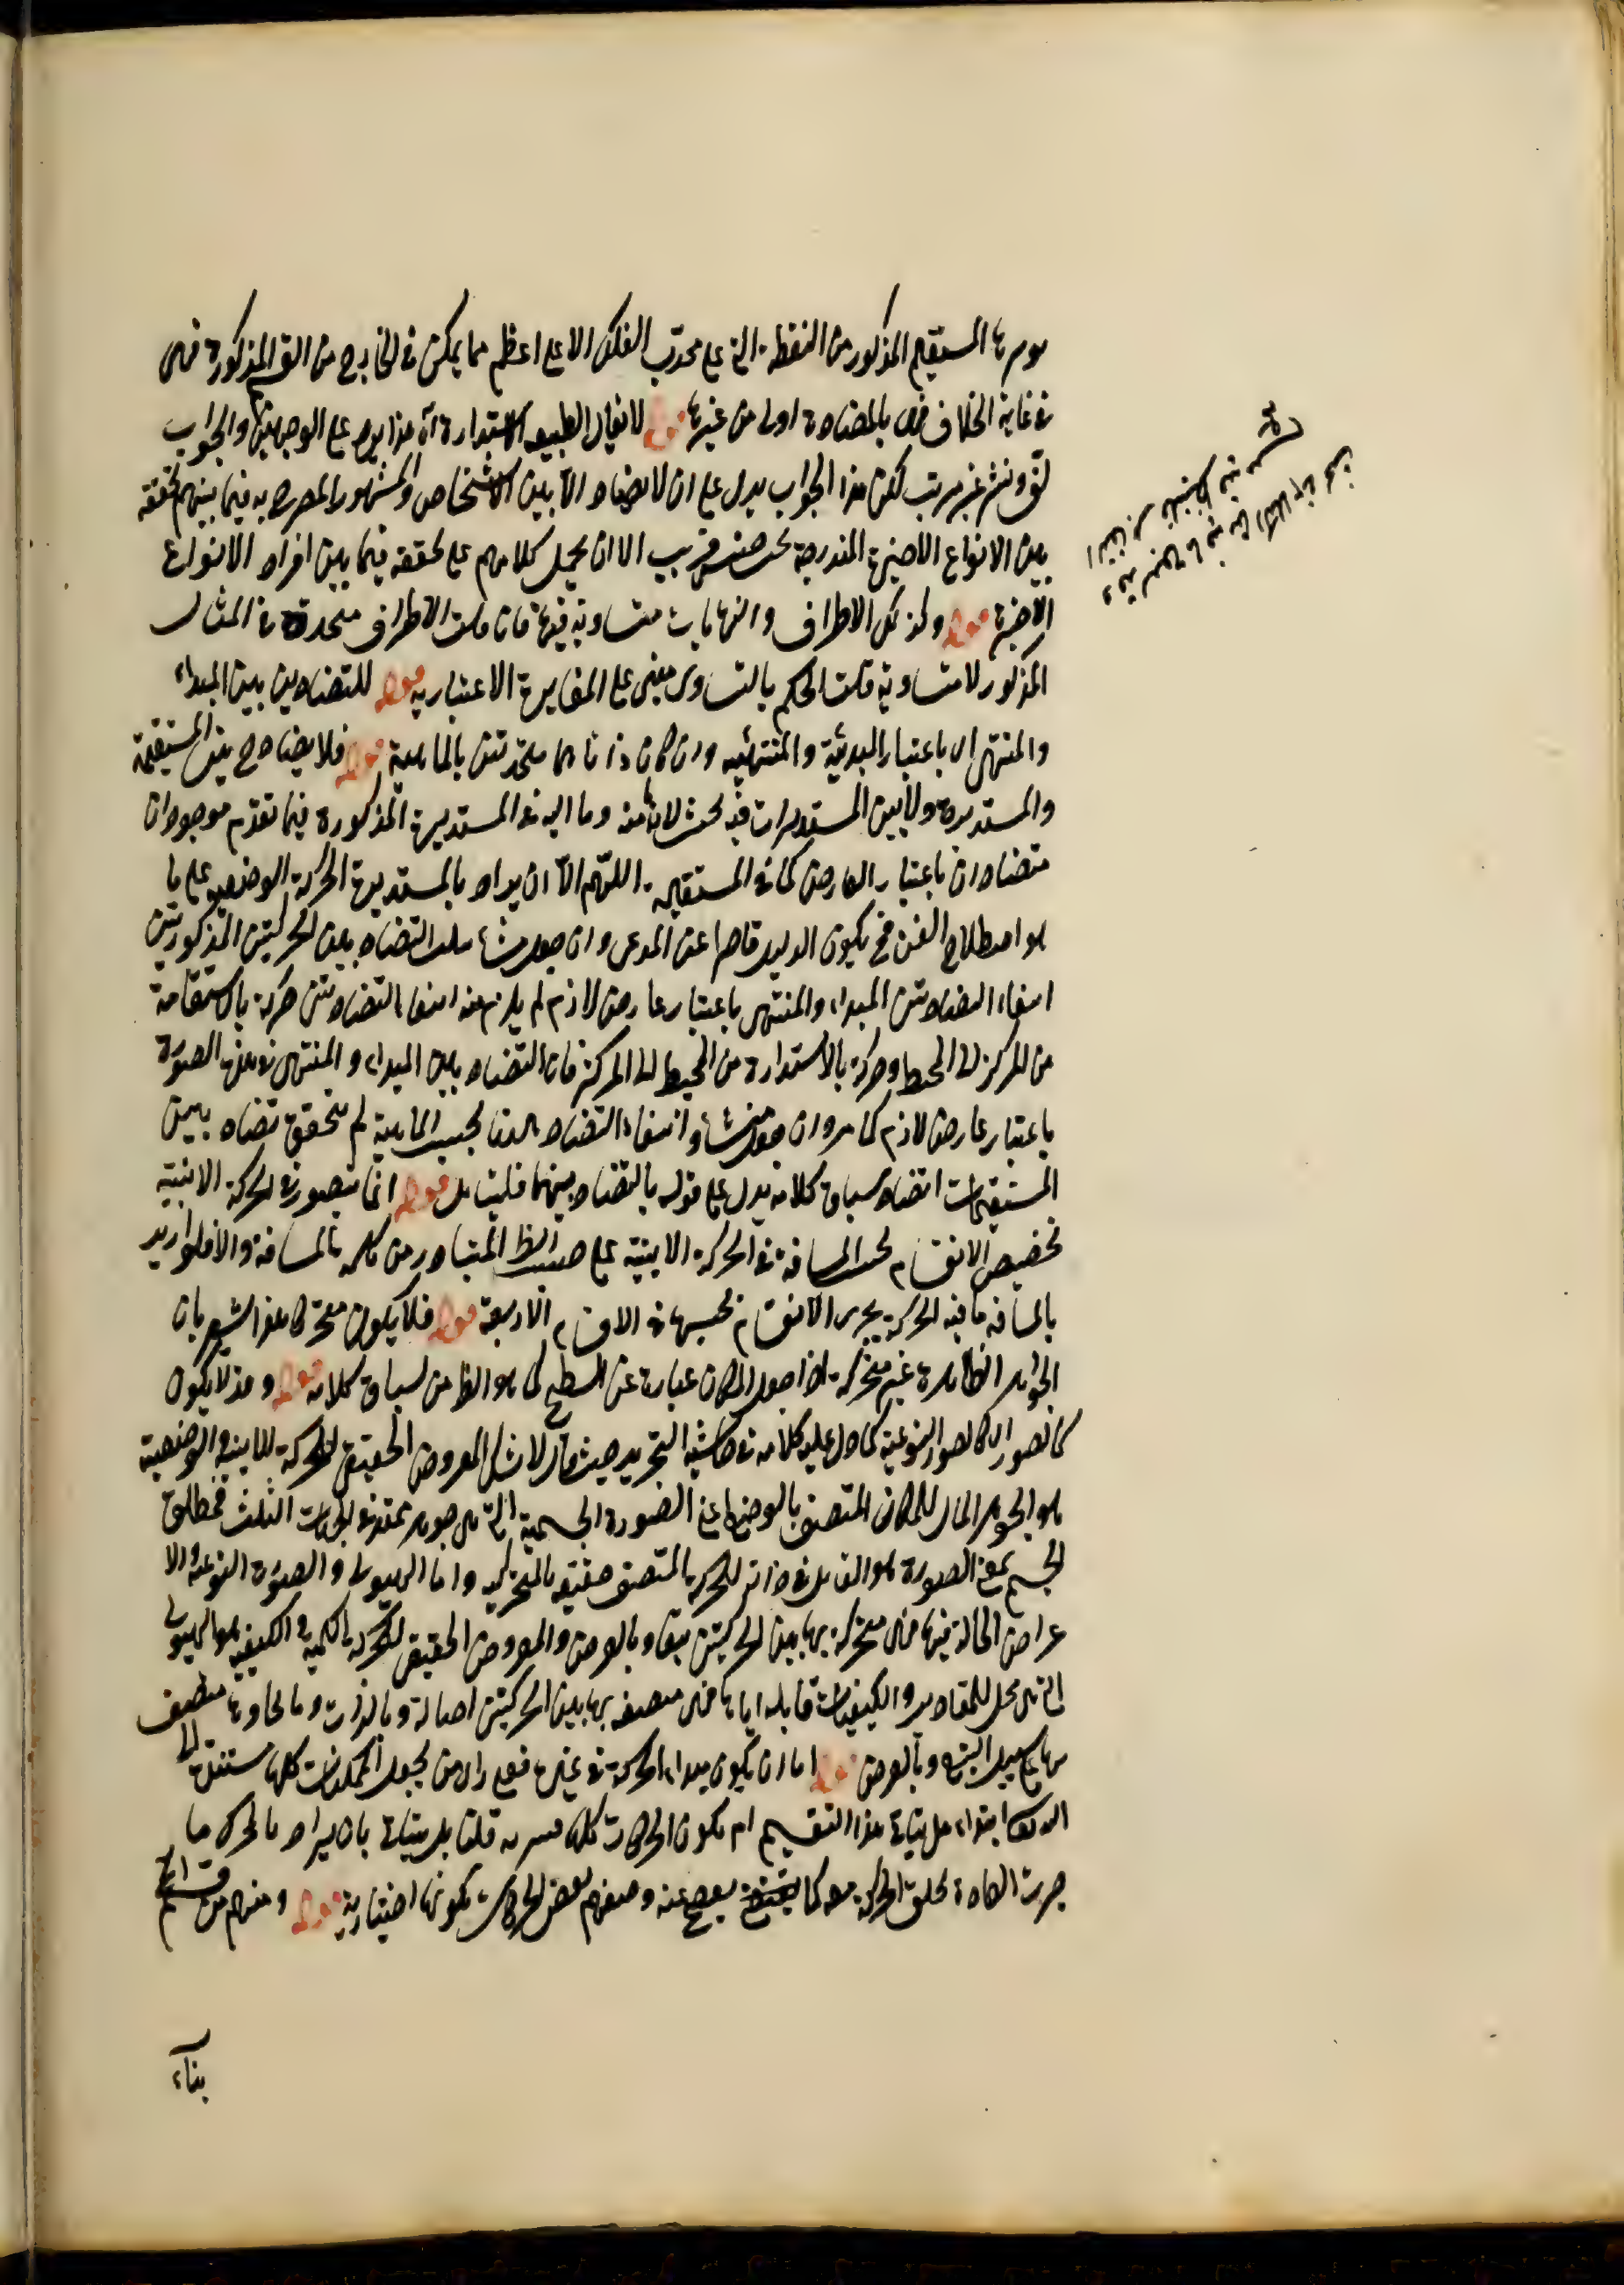 المستقيم المذكور من النقطة التي على محدب الفلك الاعلى اعظم مما يمكن في الخارج من القسم المذكورة فهى
في غاية الخلاف فهى بالمضادة اولى من غيرها قوله لا يقال الطبيعة الاستدارة اه هذا يرد على الوجهين والجواب
لف ونشر غير مرتب لكن هذا الجواب يدل على ان لا تضاد الا بين الاشخاص والمشهور المصرح به فيما بينهم تحققه
بين الانواع الاخيرة المندرجة تحت جنس قريب الا ان يحمل كلامهم على تحققه فيما بين افراد الانواع
الاخيرة قوله ولذلك الاطراف والنهايات متساوية فيها فان قلت الاطراف متحدة في المثال
المذكور لا متساوية قلت الحكم بالتساوى مبنى على المغايرة الاعتبارية قوله للتضاد بين المبداء
والمنتهى اى باعتبار المبدئية والمنتهئية وان كان ذاتاهما متحدتين بالماهية قوله فلا يضاد ح بين المستقيمة
والمستديرة ولا بين المستديرات فيه بحث لان ما منه وما اليه في المستديرة المذكورة فيما تقدم موجودان
متضادان باعتبار العارض كما في المستقيمة اللهم الا ان يراد بالمستديرة الحركة الوضعية على ما
هو اصطلاح الفن فح يكون الدليل قاصرا عن المدعى وان جعل منشاء سلب التضاد بين الحركتين المذكورتين
انتفاء التضاد بين المبداء والمنتهى باعتبار عارض لازم لم يلزم منه انتفاء التضاد بين حركة بالاستقامة
من المركز الى المحيط وحركة بالاستدارة من المحيط الى المركز فان التضاد بين المبداء والمنتهى في هذه الصورة
باعتبار عارض لازم كما مر وان جعل منشاؤه انتفاء التضاد بحسب الماهية لم يتحقق تضاد بين
المستقيمات ايضا وسياق كلامه يدل على قوله بالتضاد بينهما فليتامل قوله انما يتصور في الحركة الاينية
تخصيص الانقسام بحسب المسافة في الحركة الاينية على حسب الظ المتبادر من كلمة المسافة والا فلو اريد
بالمسافة ما فيه الحركة يجرى الانقسام بحسبها في الاقسام الاربعة قوله فلا يكون متحركا هذا يشعر بان
الجواهر الظاهرة غير متحركة اذا جعل المكان عبارة عن السطح كما هو الظ من سياق كلامه قوله وقد لا يكون
كالصور اى كالصور النوعية كما دل عليه كلامه في حاشية التجريد حيث قال لا شك المعروض الحقيقى للحركة الاينية والوضعية
هو الجوهر الحال للمكان المتصف بالوضع اعنى الصورة الجسمية التى هى جوهر ممتد في الجهات الثلث فمطلق
الجسم بمعنى الصورة هو القابل في ذاته للحركة المتصف حقيقة بالمتحركية واما الهيولى والصورة النوعية والا
عراض الحالة فيها فهى متحركة بهاتين الحركتين تبعا وبالعرض والمعروض الحقيقى للحركة الكمية والكيفية هو الهيولى
التى هى محل للمقادير والكيفيات قابلة اياها فهى متصفة بهاتين الحركتين اصالة وبالذات وما يجاورها متصف
بها على سبيل التبع وبالعرض قوله اما ان يكون مبداء الحركة في غيره فعلى راى من يجعل الممكنات كلها مستندة الى
الله تعالى ابتداء هل يتاتى هذا التقسيم ام يكون الحركات كلها قسرية قلنا بل يتاتى بان يراد بالمحرك ما
جرت العادة بخلق الحركة معه كما يفصح عنه وصفهم بعض الحركات بكونها اختيارية قوله ومنهم من قسم الخ
بناء